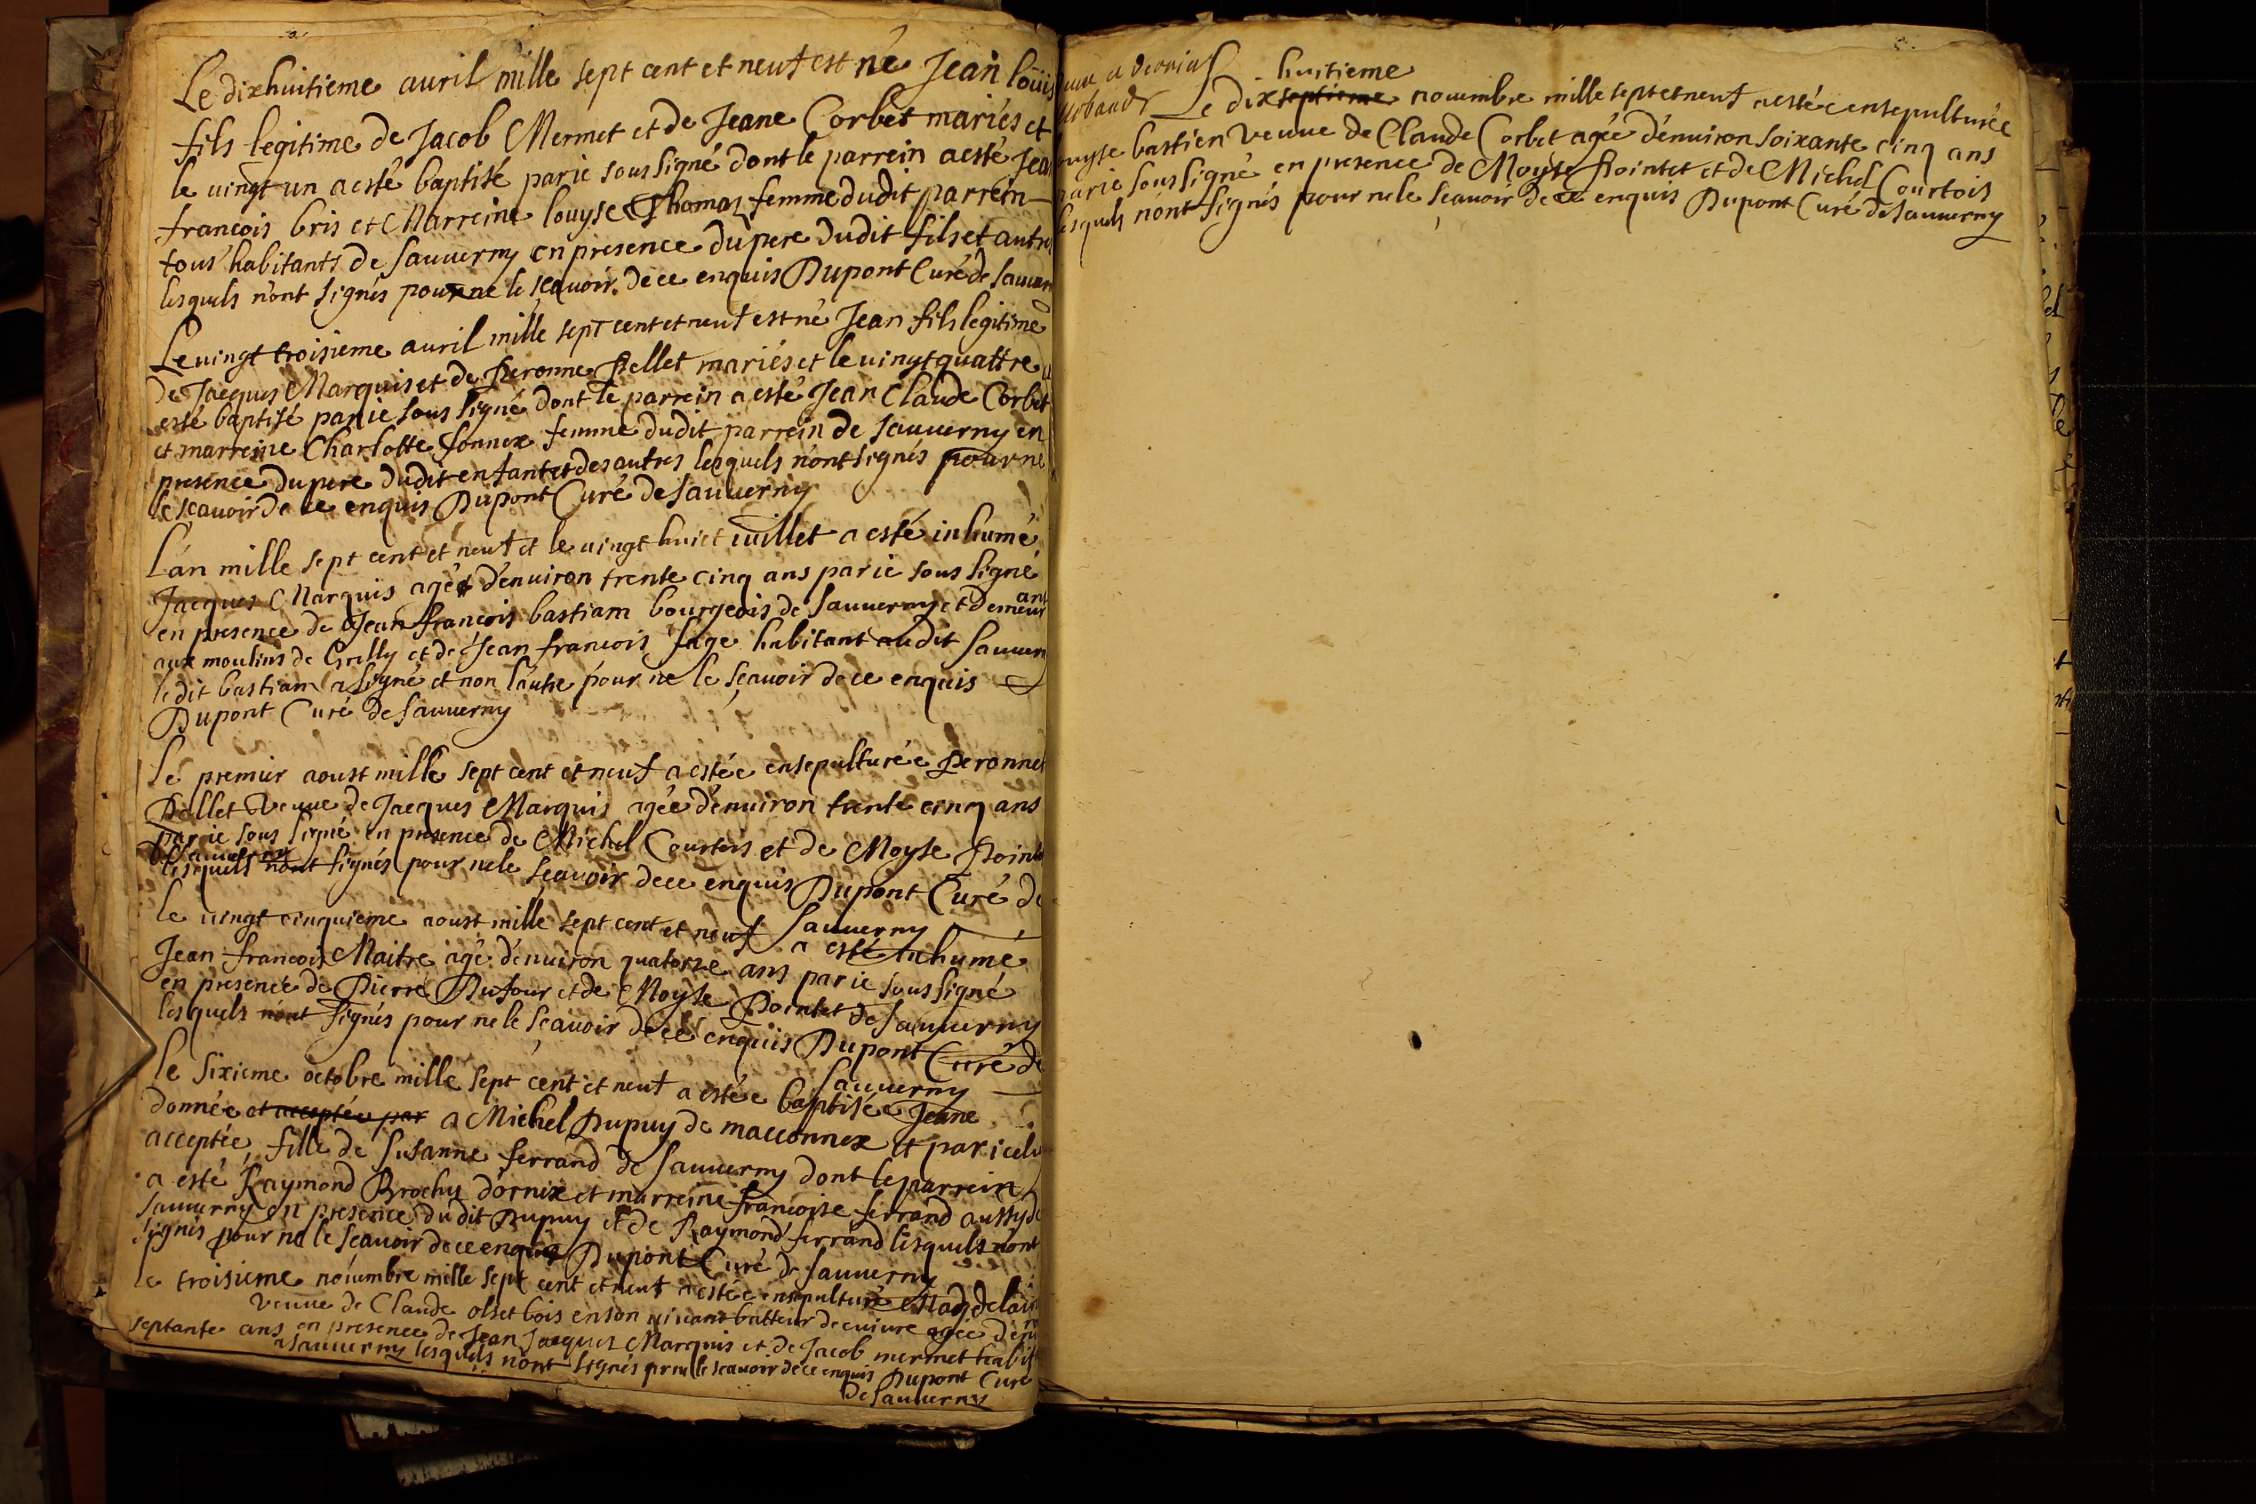 Le dixhuitieme auril mille sept cent et neuf est né Jean loüis
fils legitime de Jacob Mermet et de Jeane Corbet mariés et
le uingt un a esté baptisé par ie sous signé dont le parrein a esté Jean
francois bris et Marreine louyse Thomas femme dudit parrein
tous habitants de sauuerny en presence du pere dudit fils et autres
lesquels n'ont signés pour ne le scauoir de ce enquis Dupont Curé de sauuern
Le uingt troisieme auril mille sept cent et neuf est né Jean fils legitime
de Jacques Marquis et de Peronne Pellet mariés et le uingt quattre a
esté baptisé par ie sous signé dont le parrein a esté Jean Claude Corbet
et marreine Charlotte fonnex femme dudit parrein de sauuerny en
presence du pere dudit enfant et des autres lesquels n'ont signés pour ne
le scauoir de ce enquis Dupont Curé de sauuerny
L'an mille sept cent et neuf et le uingt huict iuillet a esté inhumé
Jacques Marquis agé d'enuiron trente cinq ans par ie sous signé
en presence de Jean francois bastiam bourgeois de sauuerny et demeur
ant
aux moulins de Grilly et de Jean francois fage habitant audit sauuern
le dit bastiam a signé et non l'autre pour ne le scauoir de ce enquis
Dupont Curé de sauuerny
Le premier aoust mille sept cent et neuf a estée ensepulturée Peronne
Pellet Veuue de Jacques Marquis agée d'enuiron trente cinq ans
par ie sous signé en presence de Michel Courtois et de Moyse Pointe
lesquels n'ont signés pour ne le scauoir de ce enquis Dupont Curé de
Sauuerny
le uingt cinquieme aoust mille sept cent et neuf a esté inhumé
Jean francois Maitre agé d'enuiron quatorze ans par ie sous signé
en presence de Pierre Dufour et de Moyse Pointet de sauuerny
lesquels n'ont signés pour ne le scauoir de ce enquis Dupont Curé de
sauuerny
le sixieme octobre mille sept cent et neuf a estée baptisée Jeane
donnée et acceptée par a Michel Dupuy de macconnex et par icelu
acceptée, fille de susanne ferrand de sauuerny dont le parrein
a esté Raymond Brochu d'ornex et marreine francoise ferrand aussy de
sauuerny en presence dudit Dupuy et de Raymond ferrand lesquels n'ont
signés pour ne le scauoir de ce enquis Dupont Curé de sauuerny
le troisieme nouembre mille sept cent et neuf a estée ensepulturé Magdelai
Veuue de Claude olset bois en son uiuant batteur de cuiure agée d'enu
septante ans en presence de Jean Jacques Marquis et de Jacob mermet habit
a sauuerny lesquels n'ont signés pr ne le scauoir de ce enquis Dupont Curé
de sauuerny
huitieme
Le dix septieme nouembre mille sept et neuf a estée ensepulturée
ouyse bastien veuue de Claude Corbet agée d'enuiron soixante cinq ans
par ie sous signé en presence de Moyse Pointet et de Michel Courtois
lesquels n'ont signés pour ne le scauoir de ce enquis Dupont Curé de sauuerny